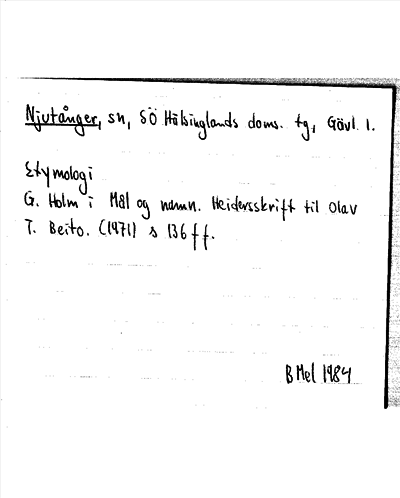 Njutånger, sn, SÖ Hälsinglands doms. tg, Gävl. l.
Etymologi
G. Holm i Mål og namn. Heidersskrift til Olav
T. Beito. (1971) s 136 ff.
B Mel 1984